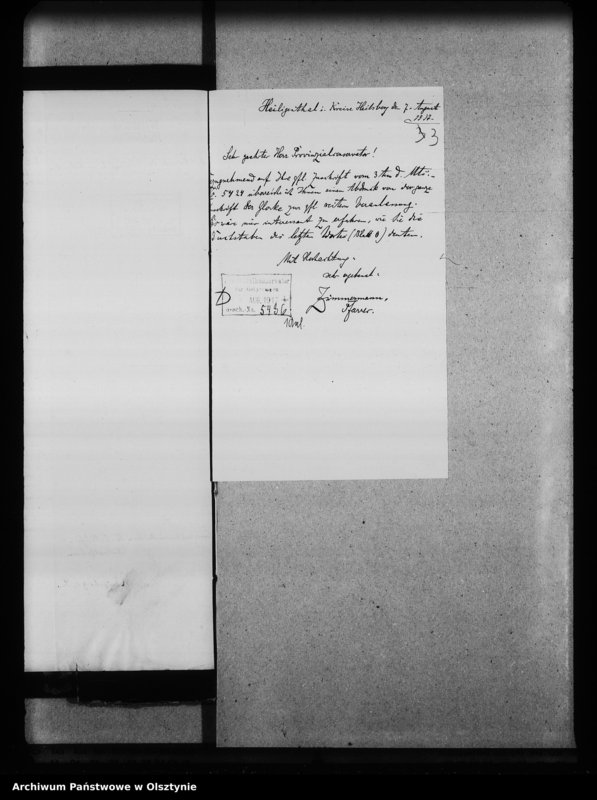 Heiligenthal i. Kreise Heilsberg den 7. August
1917.
33
Sehr geehrter Herr Provinzialconservator!
Bezugnehmend auf Ihre gfl. Zuschrift vom 3ten d. Mts.
5424 übersende ich Ihnen einen Abdruck von der ganzen
Inschrift der Glocke zur gfl. weitern Veranlassung.
Es wäre mir interessant zu erfahren, wie Sie die
Buchstaben des letzten Wortes (Blatt 8) deuten.
Mit Hochachtung
sehr ergebenst
D
AUG. 1917
Zimmermann,
Journ. No. 5436
Pfarrer.
Archiwum Państwowe w Olsztynie